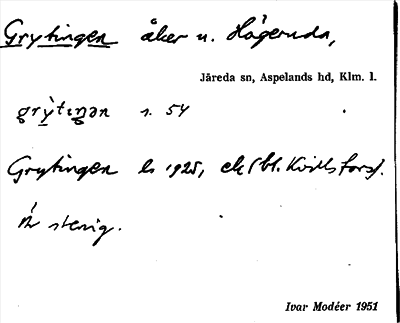 Grytingen åker u. Högeruda,
Järeda sn, Aspelands hd, Klm. l.
s. 54
Grytingen ls 1925, ek (bl. Kvillsfors).
Är stenig.
Ivar Modéer 1951